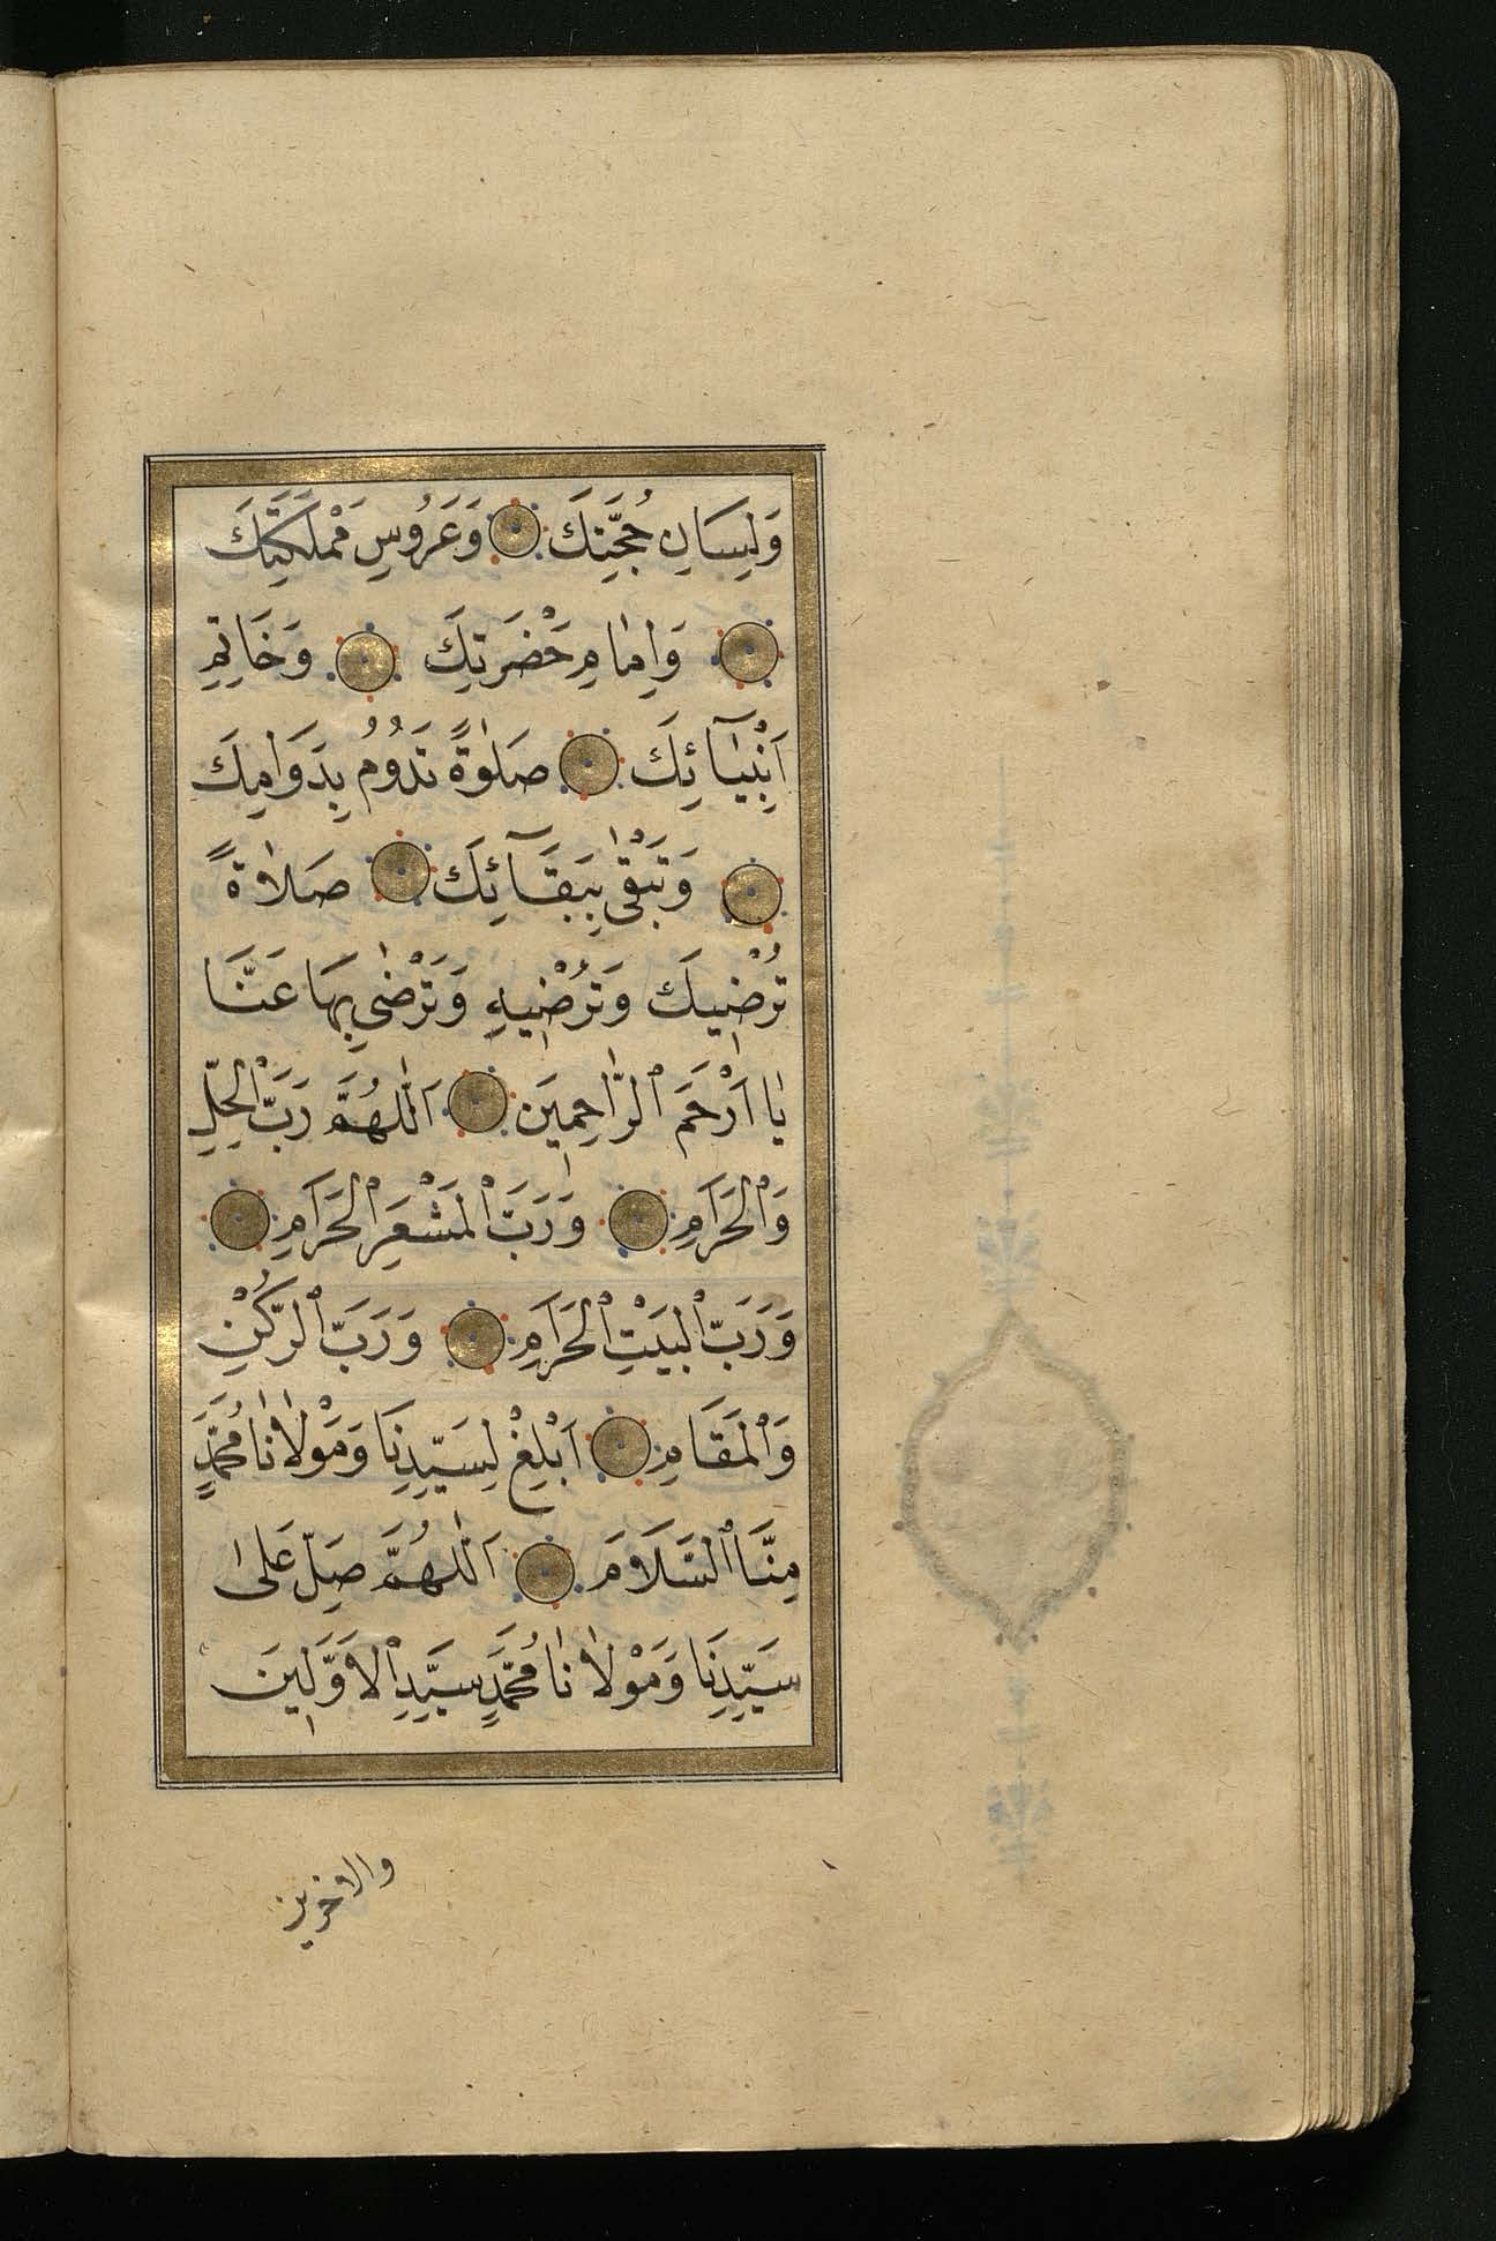 وَلِسَانِ حُجَّتِكَ وَعَرُوسِ مَمْلَكَتِكَ
وَاِمَامِ حَضْرَتِكَ وَخَاتِمِ
اَنْبِيَآئِكَ صَلٰوةً تَدُومُ بِدَوَامِكَ
وَتَبْقٰى بِبَقَآئِكَ صَلَاةً
تُرْضِيكَ وَتُرْضِيهِ وَتَرْضٰى بِهَا عَنَّا
يَا اَرْحَمَ ٱلرَّاحِمِينَ اَللّٰهُمَّ رَبَّ ٱلْحِلِّ
وَٱلْحَرَامِ وَرَبَّ ٱلْمَشْعَرِ ٱلْحَرَامِ
وَرَبَّ ٱلْبَيْتِ ٱلْحَرَامِ وَرَبَّ ٱلرُّكْنِ
وَٱلْمَقَامِ اَبْلِغْ لِسَيِّدِنَا وَمَوْلَانَا مُحَمَّدٍ
مِنَّا ٱلسَّلَامَ اَللّٰهُمَّ صَلِّ عَلٰى
سَيِّدِنَا وَمَوْلَانَا مُحَمَّدٍ سَيِّدِ ٱلْاَوَّلِينَ
والاخرين